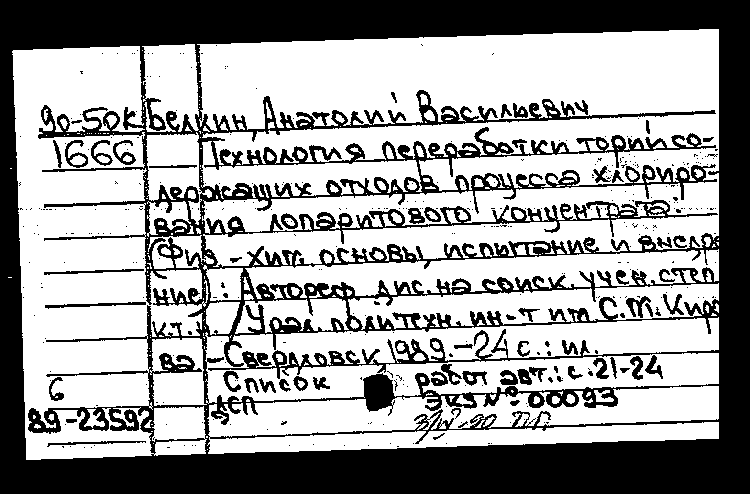 90-50к Белкин, Анатолий Васильевич
1666 Технология переработки торийсо-
держащих отходов процесса хлориро-
вания лопаритового концентрата:
(Физ.-хим. основы, испытание и внедре
ние): Автореф. дис. на соиск. учен. степ
к.т.н. / Урал. политехн. ин-т им С.М. Киро
ва. - Свердловск, 1989. - 24 с.: ил.
6 Список работ авт.: с. 21-24
89-23592 ДСП Экз № 00093